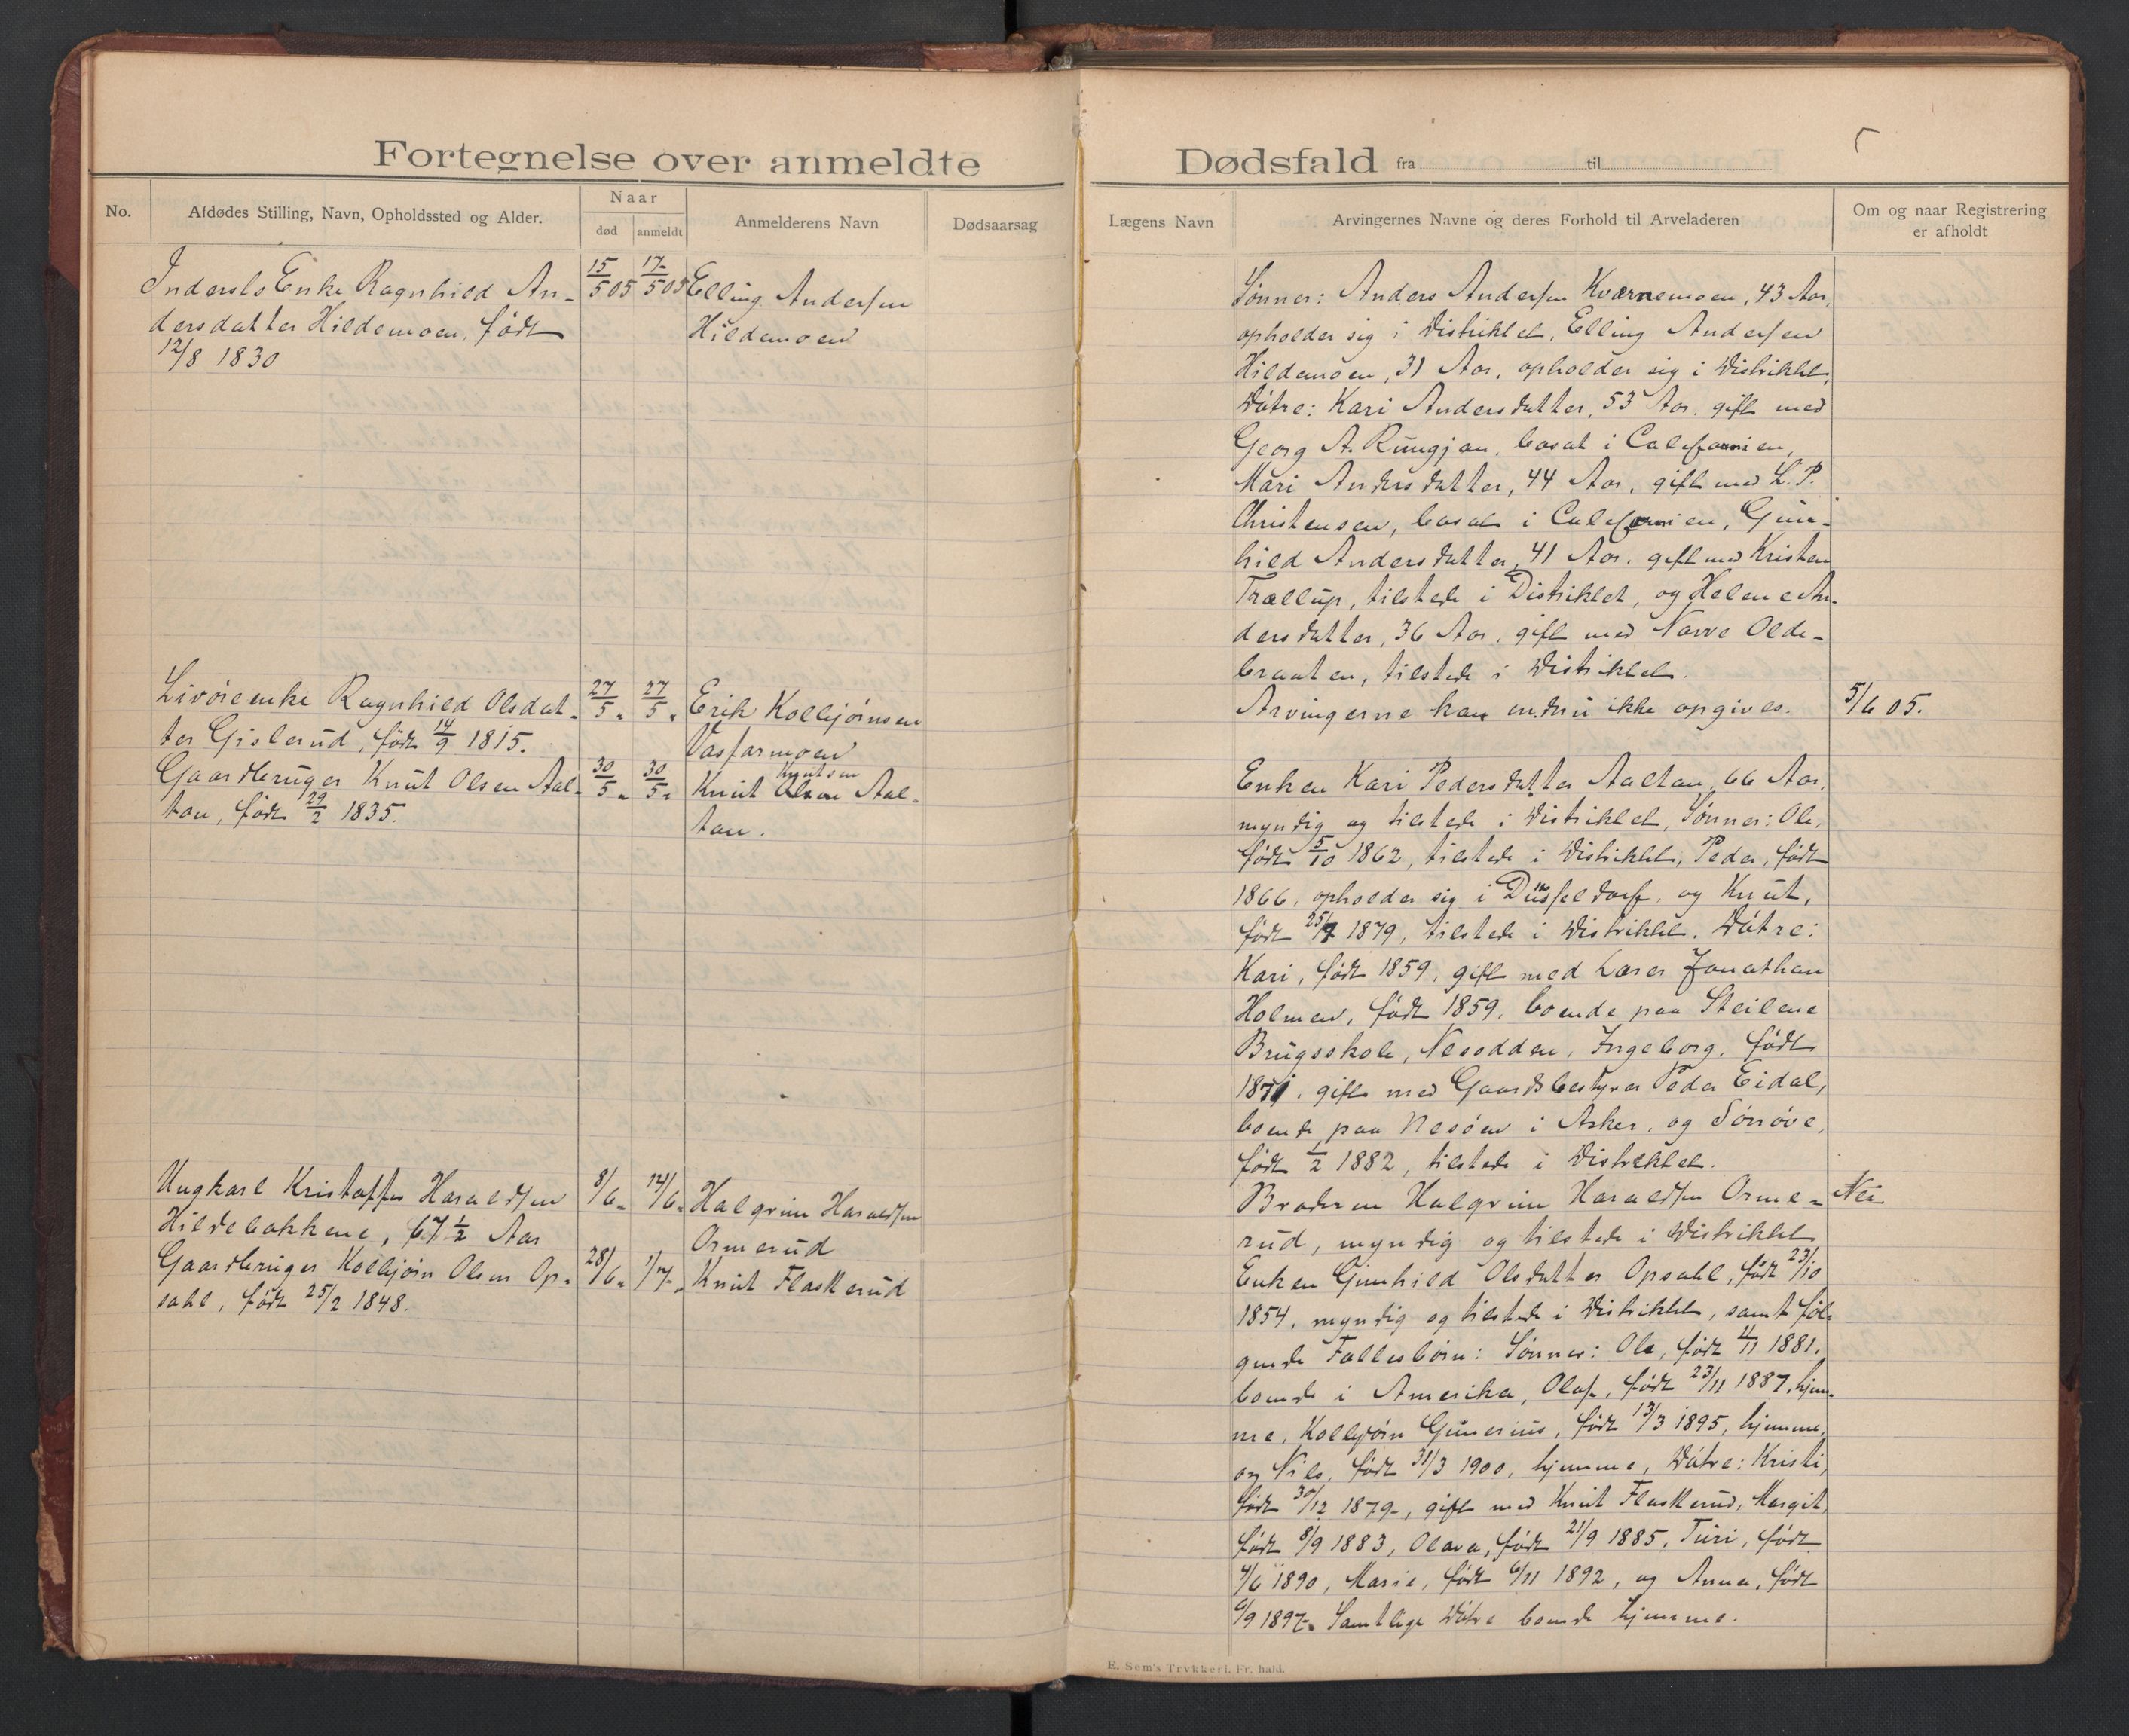 Fortegnelse over anmeldte
No.
Afdødes Stilling, Navn, Opholdssted og Alder.
Naar
død
anmeldt
Anmelderens Navn
Dødsaarsag
Inderste Enke Ragnhild An-
dersdatter Hildemoen, født
12/8 1830
15/5 05
17/5 05
Elling Andersen
Hildemoen
Livöreenke Ragnhild Olsdat-
ter Gislerud, født 14/9 1815.
27/5 "
27/5 "
Erik Kolbjörnsen
Vasfarmoen
Gaardbruger Knut Olsen Aal-
ton, født 29/2 1835.
30/5 "
30/5 "
Knutsen
Knut Olsen Aal-
ton.
Ungkarl Kristoffer Haraldsen
Hildebakkene, 67 1/2 Aar
8/6 "
14/6 "
Halgrim Haraldsen
Ormerud
Gaardbruger Kolbjörn Olsen Op-
sahl, født 25/2 1848.
28/6 "
1/7 "
Knut Flaskerud
Dødsfald fra til
Lægens Navn
Arvingernes Navne og deres Forhold til Arveladeren
Om og naar Registrering
er afholdt
Sönner: Anders Andersen Kværnemoen, 43 Aar,
opholder sig i Distriktet, Elling Andersen
Hildemoen, 31 Aar, opholder sig i Distriktet,
Dötre: Kari Andersdatter, 53 Aar, gift med
Georg A. Rungjan, bosat i Californien,
Mari Andersdatter, 44 Aar, gift med L. P.
Christensen, bosat i Californien, Gun-
hild Andersdatter, 41 Aar, gift med Kristen
Trællup, tilstede i Distriktet, og Helene An-
dersdatter, 36 Aar, gift med Narve Olde-
braaten, tilstede i Distriktet.
Arvingerne kan endnu ikke opgives.
5/6 05.
Enken Kari Pedersdatter Aalton, 66 Aar,
myndig og tilstede i Distriktet, Sönner: Ole,
født 5/10 1862, tilstede i Distriktet, Peder, født
1866, opholder sig i Düsseldorf, og Knut,
født 25/7 1879, tilstede i Distriktet. Dötre:
Kari, født 1859, gift med Lærer Jonathan
Holmen, født 1859, boende paa Steilene
Brugsskole, Nesodden, Ingeborg, født
1871, gift med Gaardsbestyrer Peder Eidal,
boende paa Nesöen i Asker, og Sönöve,
født 1/2 1882, tilstede i Distriktet.
Broderen Halgrim Haraldsen Orme-
rud, myndig og tilstede i Distriktet
Nei
Enken Gunhild Olsdatter Opsahl, født 23/10
1854, myndig og tilstede i Distriktet, samt föl-
gende Fællesbörn: Sönner: Ole, født 4/11 1881,
boende i Amerika, Olaf, født 23/11 1887, hjem-
me, Kolbjörn Gunerius, født 13/3 1895, hjemme,
og Nils, født 31/3 1900, hjemme, Dötre: Kristi,
født 30/12 1879, gift med Knut Flaskerud, Margit,
født 8/9 1883, Olava, født 21/9 1885, Turi, født
4/6 1890, Marie, født 6/11 1892, og Anna, født
6/9 1897. Samtlige Dötre boende hjemme.
E. Sem's Trykkeri, Fr. hald.